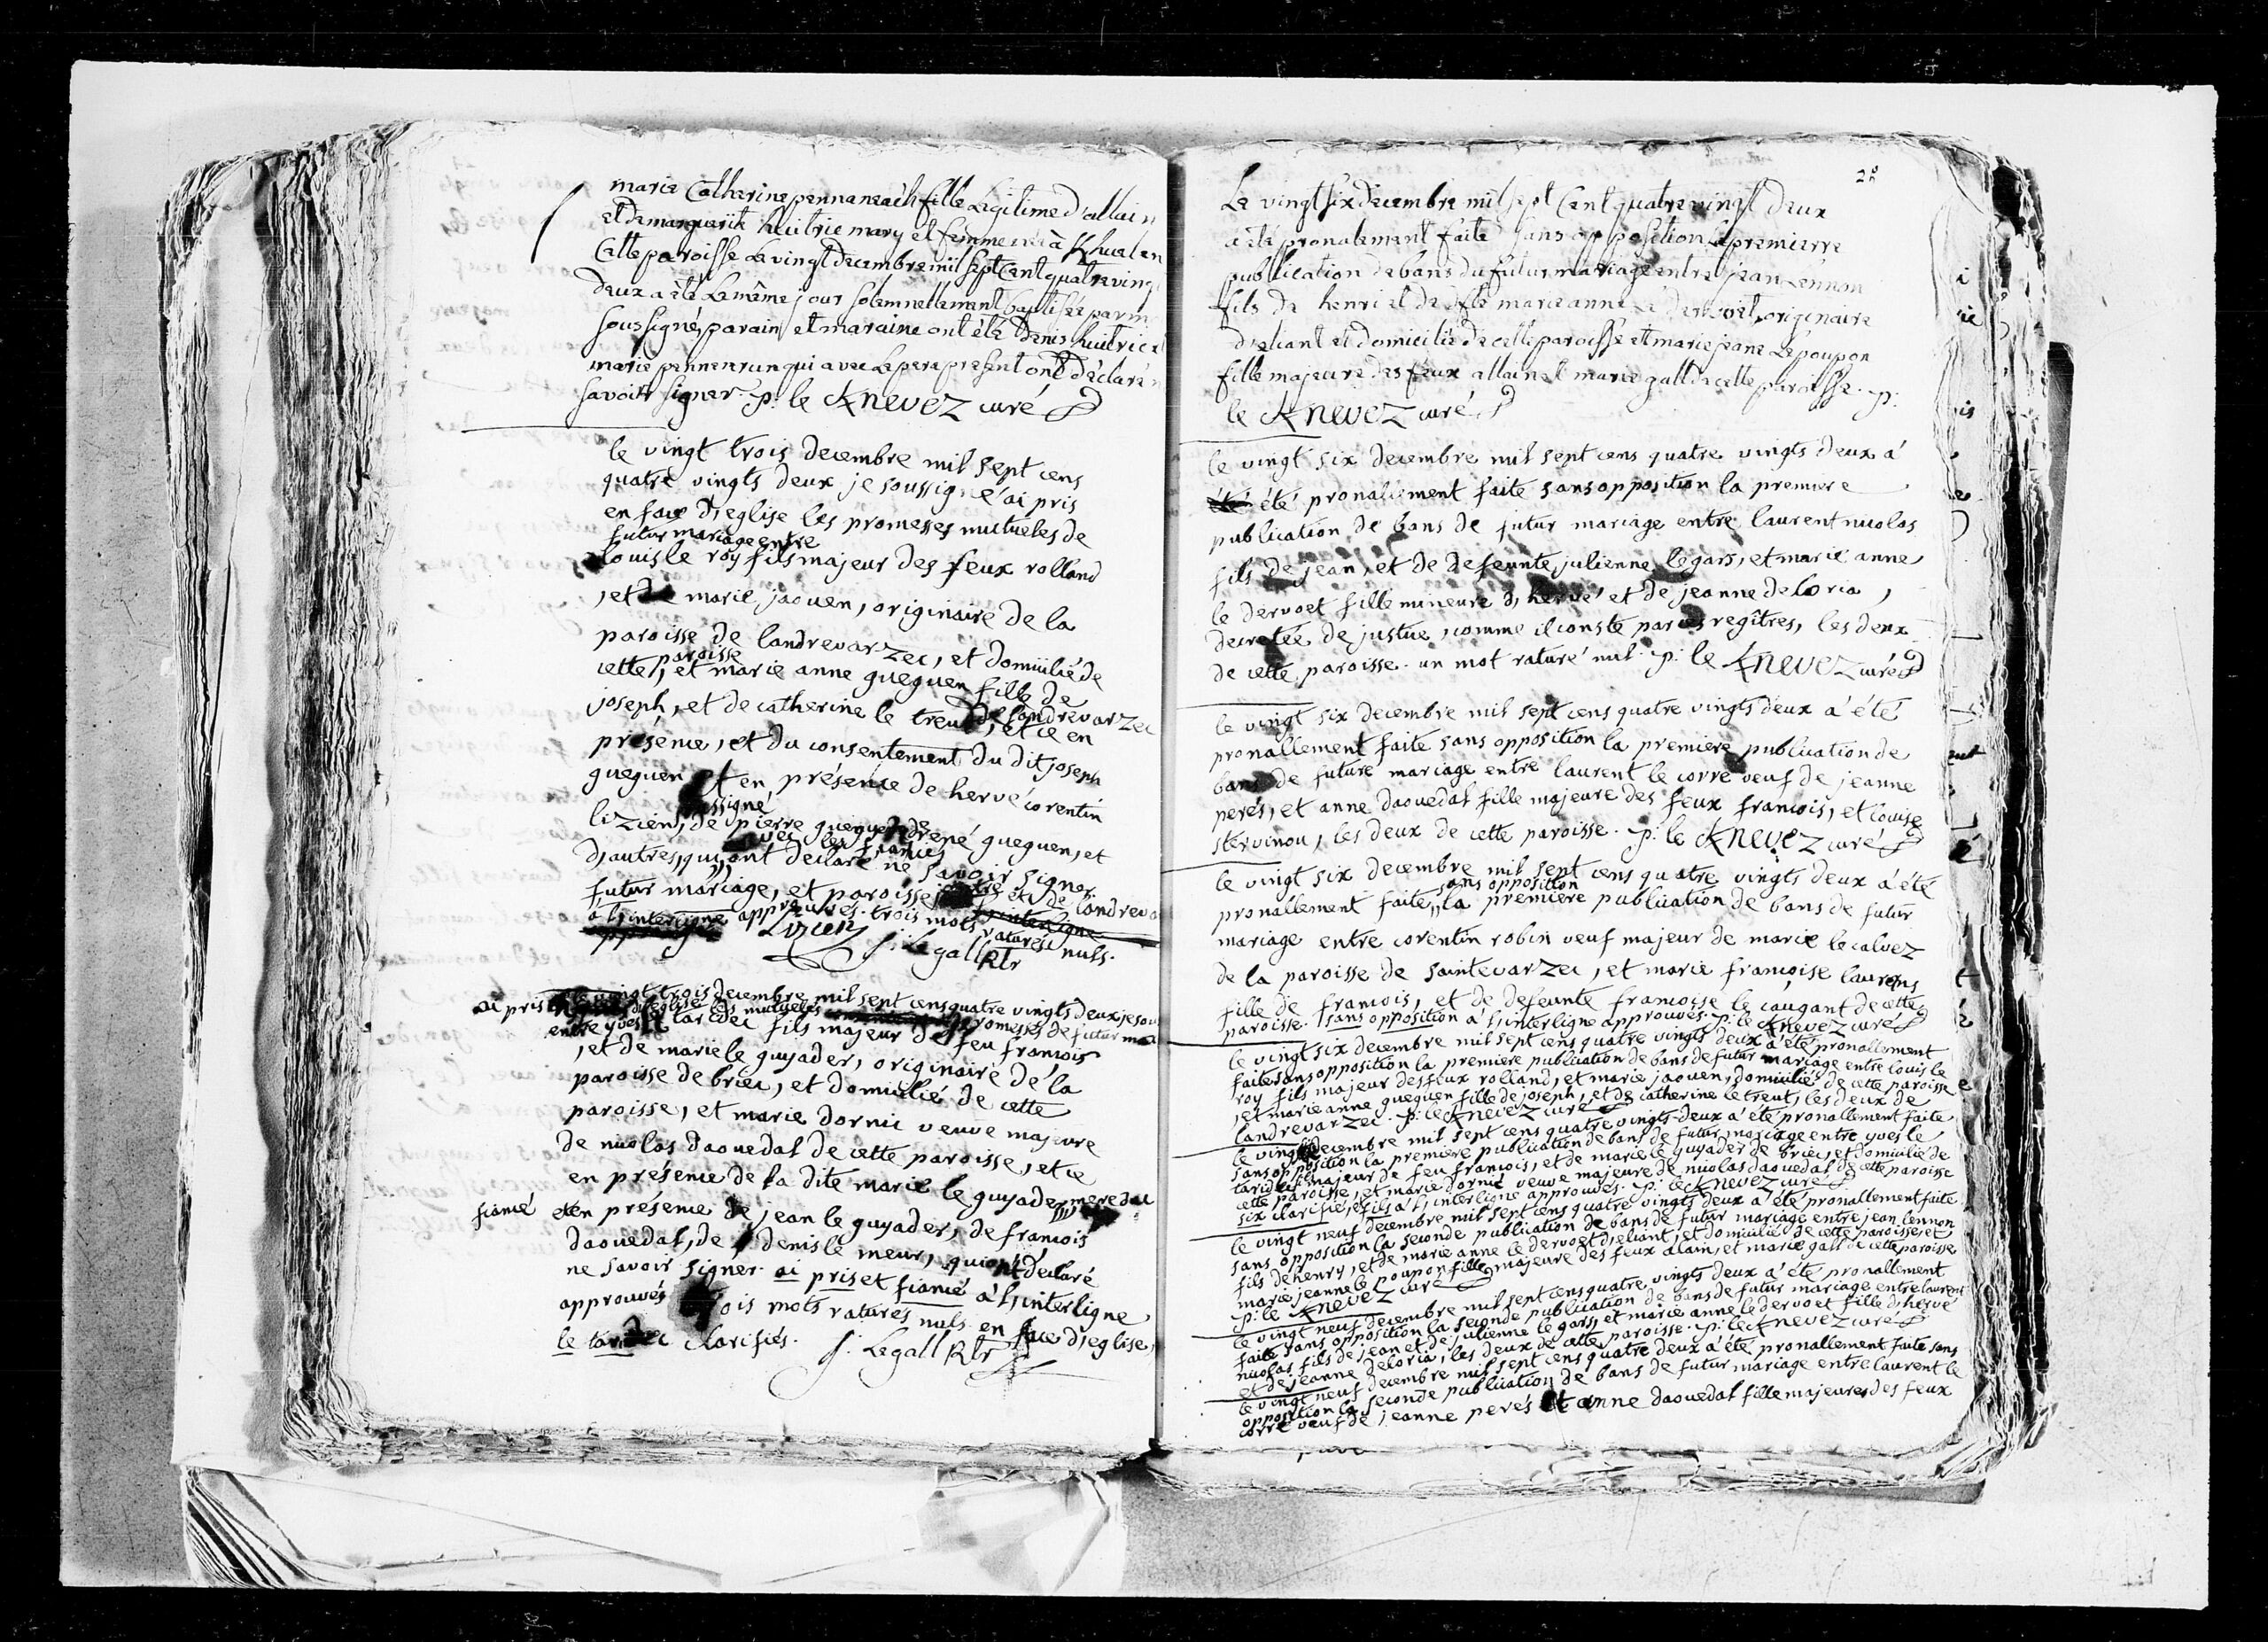 marie Catherine pennaneach fille Legitime d'allain
et de marguerite huitric mary et femme née à Khuel en
Cette paroisse Le vingt decembre mil sept Cent quatre ving
deux a été Le même jour solemnellement baptisée par m
soussigné, parain et maraine ont été Denis huitric et
marie pennenrun qui avec Le pere present ont déclaré
savoir signer. p: le Knevez curé
le vingt trois decembre mil sept cens
quatre vingts deux je soussigné ai pris
en face d'eglise les promesses mutueles de
futur mariage entre
louis le roy fils majeur des feux rolland
, et de marie jaouen, originaire de la
paroisse de landrevarzec, et domicilié de
paroisse
cette, et marie anne gueguen fille de
joseph, et de catherine le treut, de landrevarzec
et ce en
présence, et du consentement du dit joseph
gueguen et en présence de hervé corentin
ssigné
lizien, de pierre gueguen de rené gueguen, et
avec les fiancés
d'autres, qui ont déclaré ne savoir signer.
futur mariage, et paroisse et de landreva
à l'interligne approuvés. trois mots raturés nuls.
Lizien
j: Legall Rtr
le vingt trois decembre mil sept cens quatre vingts deux je sou
ai pris d'eglise les mutueles promesses de futur ma
entre yves le taridec fils majeur de feu françois
, et de marie le guyader, originaire de la
paroisse de briec, et domicilié de cette
paroisse, et marie dornic veuve majeure
de nicolas daouedal de cette paroisse, et ce
en présence de la dite marie le guyader, mere du
fiancé et en présence de jean le guyader, de francois
daouedal, de denis le meur, qui ont declaré
ne savoir signer. ai pris et fiancé à l'interligne
approuvés trois mots raturés nuls. en face d'eglise,
le taridec clarifiés. j: Legall Rtr
28
Le vingt six decembre mil sept Cent quatre vingt deux
a été pronalement faite sans opposition la premierre
publication de bans du futur mariage entre jean Lennon
fils de henri et de dfte marie anne Le dervoet, originaire
d'eliant et domicilié de cette paroisse et marie jeane Le poupon
fille majeure des feux allain et marie gall de cette paroisse. p:
le Knevez curé
le vingt six decembre mil sept cens quatre vingts deux a
été été pronallement faite sans opposition la premiere
publication de bans de futur mariage entre laurent nicolas
fils de jean, et de defeunte julienne le gars, et marie anne
le dervoet fille mineure d'hervé et de jeanne deloria,
decretée de justice, comme il conste par ces regîtres, les deux
de cette paroisse. un mot raturé nul. p: le Knevez curé
le vingt six decembre mil sept cens quatre vingts deux a été
pronallement faite sans opposition la premiere publication de
bans de future mariage entre laurent le corre veuf de jeanne
perés, et anne daouedal fille majeure des feux francois, et louise
stervinou, les deux de cette paroisse. p: le Knevez curé
le vingt six decembre mil sept cens quatre vingts deux a été
sans opposition
pronallement faite la premiere publication de bans de futur
mariage entre corentin robin veuf majeur de marie le calvez
de la paroisse de saintevarzec, et marie francoise laurens
fille de francois, et de defeunte francoise le caugant de cette
paroisse. sans opposition à l'interligne approuvés. p: le Knevez curé
le vingt six decembre mil sept cens quatre vingts deux a été pronallement
faite sans opposition la premiere publication de bans de futur mariage entre louis le
roy fils majeur des feux rolland, et marie jaouen, domicilié de cette paroisse
, et marie anne gueguen fille de joseph, et de catherine le treut, les deux de
landrevarzec. p: le Knevez curé
le vingt decembre mil sept cens quatre vingts deux a été pronallement faite
sans opposition la premiere publication de bans de futur mariage entre yves le
taridec majeur de feu francois, et de marie le guyader de briec, et domicilié de
cette paroisse, et marie dornic veuve majeure de nicolas daouedal de cette paroisse
six clarifié, et fils à l'interligne approuvés. p: le Knevez curé
le vingt neuf decembre mil sept cens quatre vingts deux a été pronallement faite
sans opposition la seconde publication de bans de futur mariage entre jean lennon
fils de henry, et de marie anne le dervoet d'eliant, et domicilié de cette paroisse, et
marie jeanne le poupon fille majeure des feux alain, et marie gall de cette paroisse
p: le Knevez curé
le vingt neuf decembre mil sept cens quatre vingts deux a été pronallement
faite sans opposition la seconde publication de bans de futur mariage entre laurent
nicolas fils de jean et de julienne le gars, et marie anne le dervoet fille d'hervé
et de jeanne deloria, les deux de cette paroisse. p: le Knevez curé
le vingt neuf decembre mil sept cens quatre deux a été pronallement faite sans
opposition la seconde publication de bans de futur mariage entre laurent le
corre veuf de jeanne perés et anne daouedal fille majeure des feux